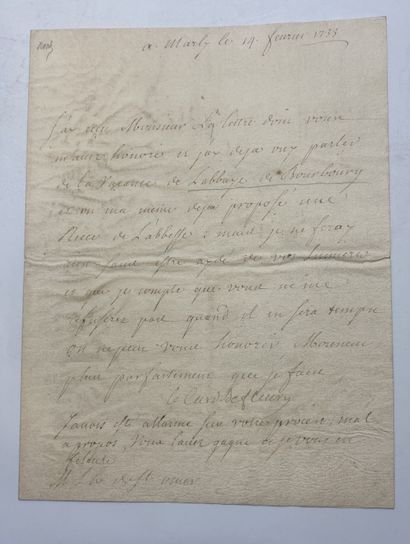 a Marly le 14. fevrier 1735
J'ay reçu Monsieur La lettre dont vous
m'avez honoré et j'ay deja ouy parler
de la Vacance de Labbaye de Bourbourg
et on ma meme deja proposé une
Niece de Labbesse; mais je ne feray
rien sans estre aydé de vos lumieres
et que je compte que vous ne me
refuserez pas quand il en sera temps
on ne peut vous honorer Monsieur
plus parfaitement que je fais
le Card. de fleury
J'avois esté allarmé sur votre procès mal
a propos, Vous l'avez gagné et je vous en
felicite